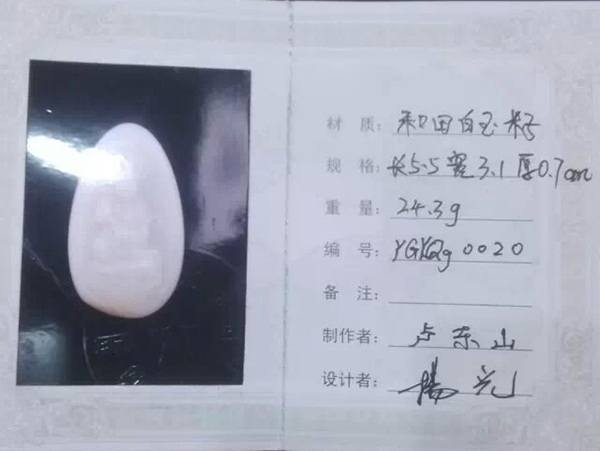 材 质: 和田白玉籽
规 格: 长5.5宽3.1厚0.7cm
重 量: 24.3g
编 号: YGYQg0020
备 注:
制作者: 卢东山
设计者: 杨光